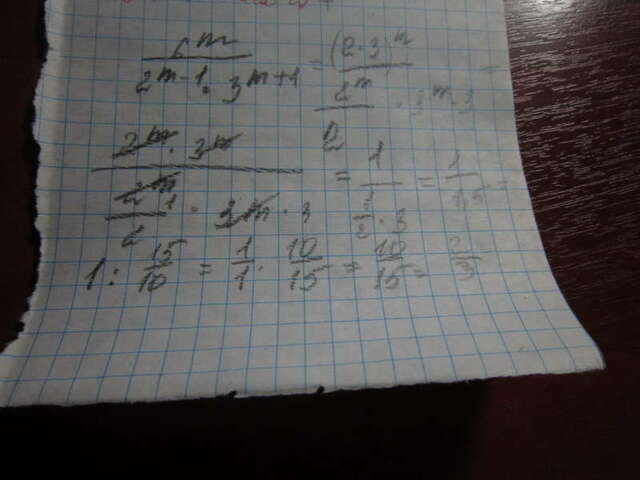 6^m / (2^m-1 · 3^m+1) = (2·3)^m / ((2^m / 2) · 3^m·3)
(2^m · 3^m) / ((2^m 1 / 2) · 3^m · 3) = 1 / (1/2 · 3) = 1 / 1,5 =
1 : 15/10 = 1/1 · 10/15 = 10/15 = 2/3